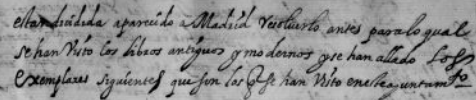 estandadidida aparecido a Madrid Resoluerlo antes para lo qual
se han Visto los libros antiguos y modernos y se han allado Los
Exemplares siguientes que son los q̃ se han Visto en este ayuntamto